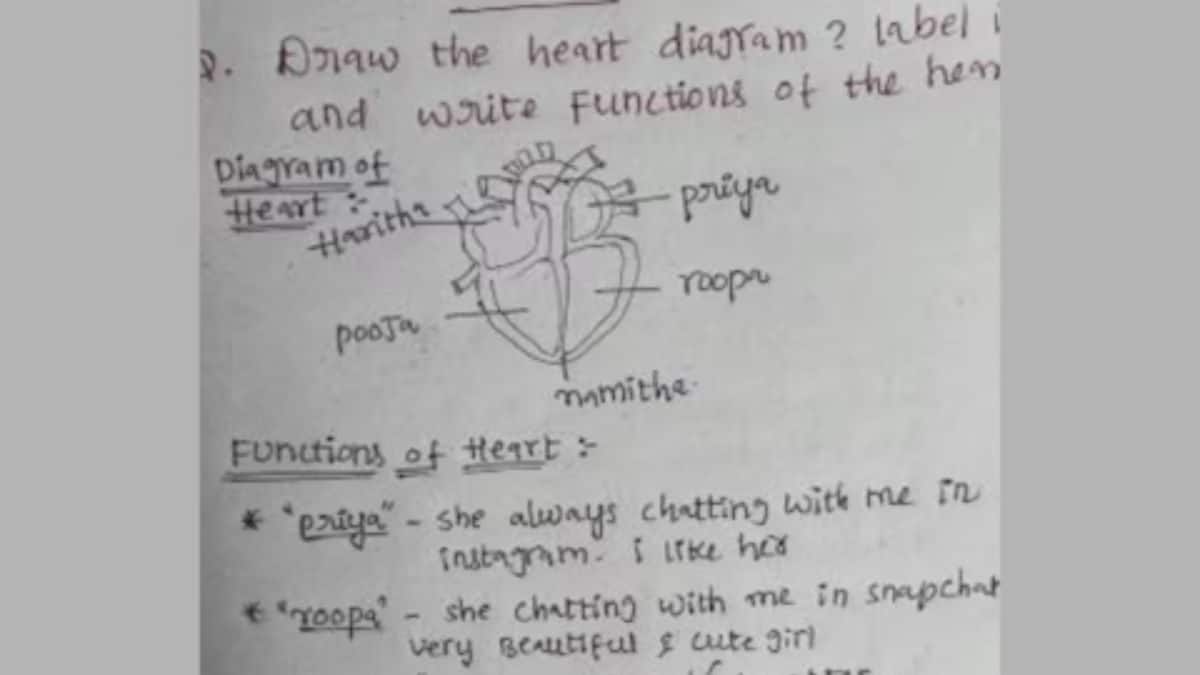 Draw the heart diagram? label
and write Functions of the
Diagram of
Heart :-
Haritha
priya
roopa
pooja
namitha
Functions of Heart :-
* "priya" - she always chatting with me in
instagram. i like her
* "roopa" - she chatting with me in snapchat
very Beautiful & cute girl